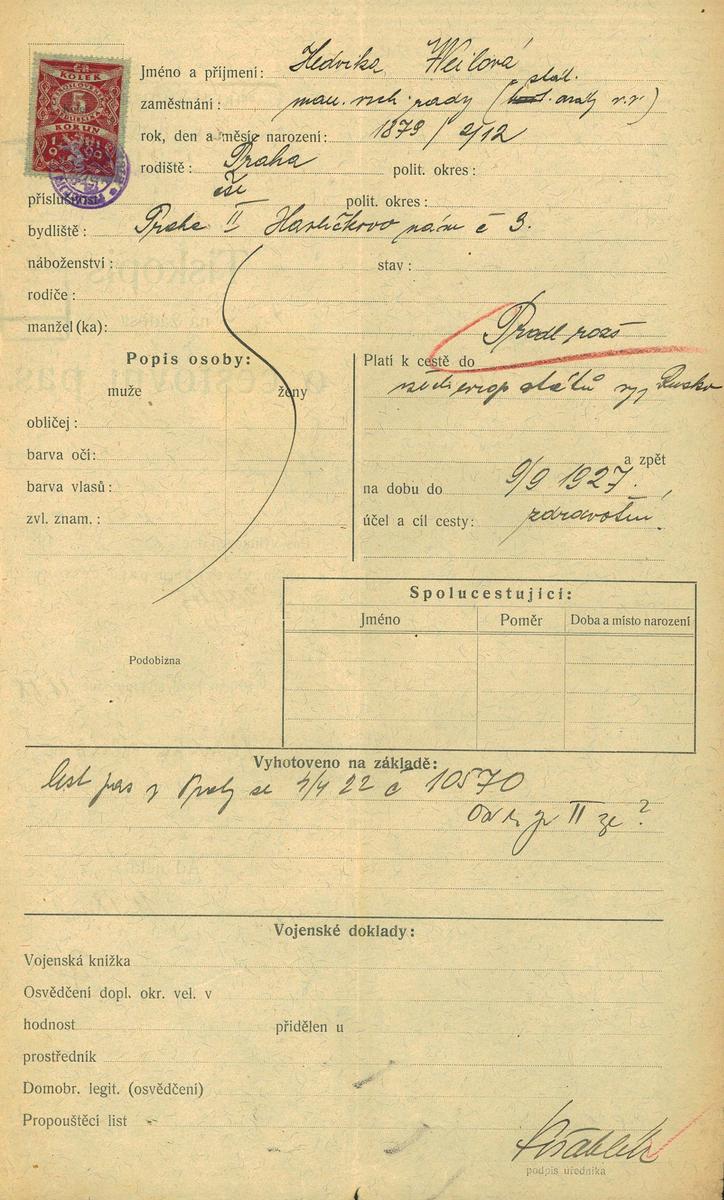 KOLEK
5
KORUN
Jméno a příjmení: Hedvika Weilová
zaměstnání: man. vrch. rady (stát. dráhy v.v)
rok, den a měsíc narození: 1879 / 2/12
rodiště: Praha polit. okres:
příslušnost: polit. okres:
bydliště: Praha II Havlíčkovo nám č 3.
náboženství: stav:
rodiče:
manžel(ka):
Popis osoby:
muže ženy
obličej:
barva očí:
barva vlasů:
zvl. znam.:
Podobizna
Prodl
Platí k cestě do
evrop států vyj Rusko
a zpět
na dobu do 9/9 1927.
účel a cíl cesty: zdravotní
Spolucestující:
Jméno Poměr Doba a místo narození
Vyhotoveno na základě:
cest pas z Prahy ze 4/4 22 č 10570
II ?
Vojenské doklady:
Vojenská knížka
Osvědčení dopl. okr. vel. v
hodnost přidělen u
prostředník
Domobr. legit. (osvědčení)
Propouštěcí list
podpis úředníka